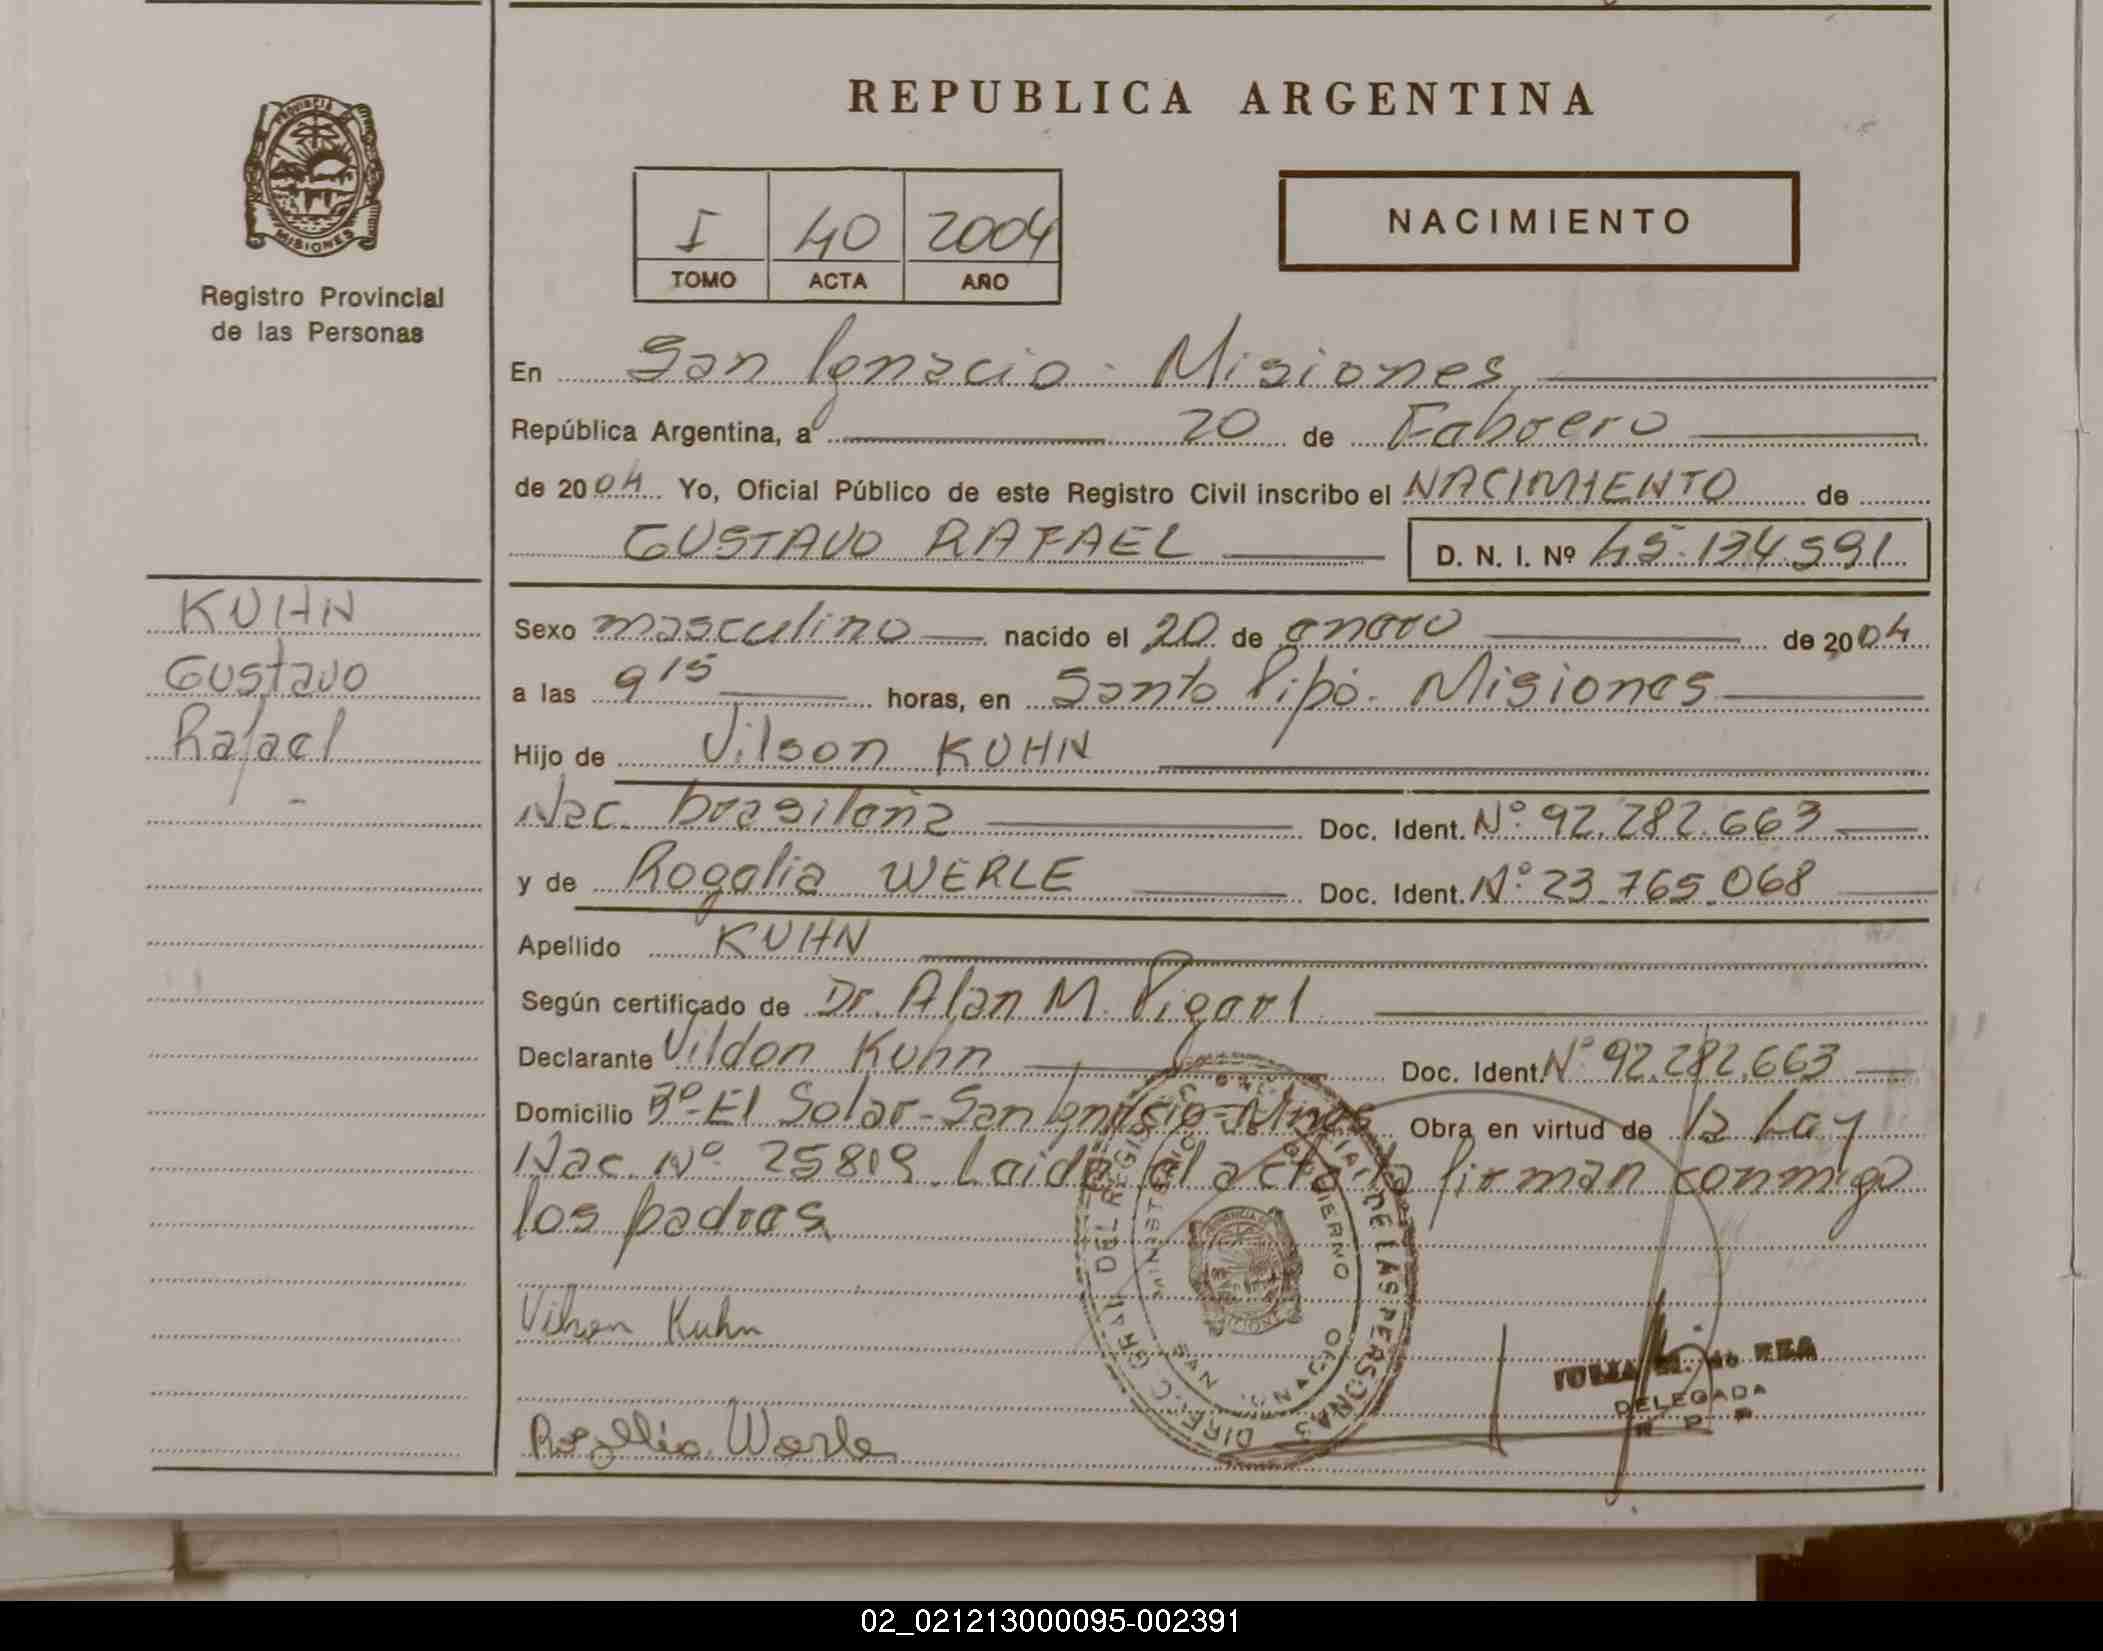 REPUBLICA ARGENTINA
PROVINCIA DE MISIONES
Registro Provincial
de las Personas
I 40 2004
TOMO ACTA AÑO
NACIMIENTO
En San Ignacio - Misiones
República Argentina, a 20 de Febrero
de 2004 Yo, Oficial Público de este Registro Civil inscribo el NACIMIENTO de
GUSTAVO RAFAEL D. N. I. Nº 45.134.591
KUHN
Gustavo
Rafael
Sexo masculino nacido el 20 de enero de 2004
a las 9 15 horas, en Santo Pipó - Misiones
Hijo de Vilson KUHN
Nac. brasileña Doc. Ident. Nº 92.282.663
y de Rogelia WERLE Doc. Ident. Nº 23.765.068
Apellido KUHN
Según certificado de Dr. Alan M.
Declarante Vildon Kuhn Doc. Ident. Nº 92.282.663
Domicilio Bº El Solar - San Ignacio - Mnes Obra en virtud de la Ley
Nac. Nº 25819. Leída el acta la firman conmigo
los padres
Vilson Kuhn
DIREC. GRAL. DEL REGISTRO PROVINCIAL DE LAS PERSONAS
MINISTERIO DE GOBIERNO
SAN IGNACIO
DELEGADA
R P P
Rogellia Werle
02_021213000095-002391